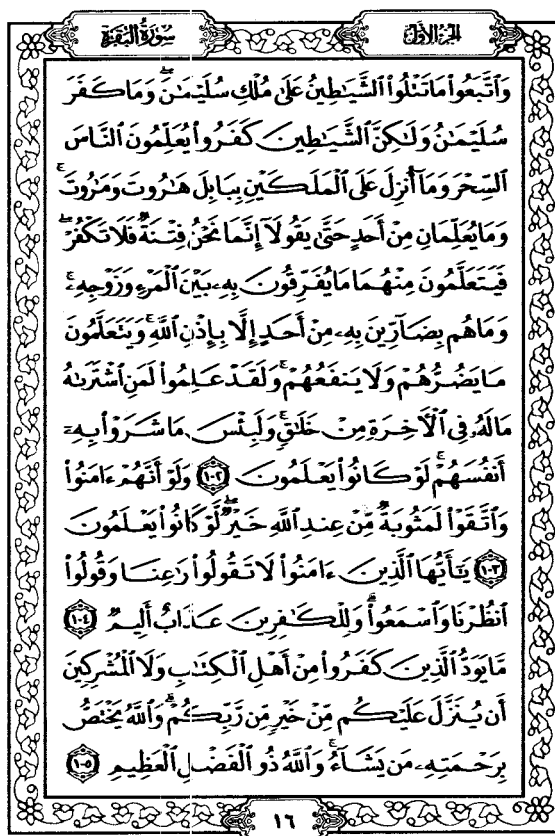 سورة البقرة
الجزء الأول
وَٱتَّبَعُوا۟ مَا تَتْلُوا۟ ٱلشَّيَٰطِينُ عَلَىٰ مُلْكِ سُلَيْمَٰنَ ۖ وَمَا كَفَرَ
سُلَيْمَٰنُ وَلَٰكِنَّ ٱلشَّيَٰطِينَ كَفَرُوا۟ يُعَلِّمُونَ ٱلنَّاسَ
ٱلسِّحْرَ وَمَآ أُنزِلَ عَلَى ٱلْمَلَكَيْنِ بِبَابِلَ هَٰرُوتَ وَمَٰرُوتَ ۚ
وَمَا يُعَلِّمَانِ مِنْ أَحَدٍ حَتَّىٰ يَقُولَآ إِنَّمَا نَحْنُ فِتْنَةٌ فَلَا تَكْفُرْ ۖ
فَيَتَعَلَّمُونَ مِنْهُمَا مَا يُفَرِّقُونَ بِهِۦ بَيْنَ ٱلْمَرْءِ وَزَوْجِهِۦ ۚ
وَمَا هُم بِضَآرِّينَ بِهِۦ مِنْ أَحَدٍ إِلَّا بِإِذْنِ ٱللَّهِ ۚ وَيَتَعَلَّمُونَ
مَا يَضُرُّهُمْ وَلَا يَنفَعُهُمْ ۚ وَلَقَدْ عَلِمُوا۟ لَمَنِ ٱشْتَرَىٰهُ
مَا لَهُۥ فِى ٱلْءَاخِرَةِ مِنْ خَلَٰقٍ ۚ وَلَبِئْسَ مَا شَرَوْا۟ بِهِۦٓ
أَنفُسَهُمْ ۚ لَوْ كَانُوا۟ يَعْلَمُونَ ١٠٢ وَلَوْ أَنَّهُمْ ءَامَنُوا۟
وَٱتَّقَوْا۟ لَمَثُوبَةٌ مِّنْ عِندِ ٱللَّهِ خَيْرٌ ۖ لَّوْ كَانُوا۟ يَعْلَمُونَ
١٠٣ يَٰٓأَيُّهَا ٱلَّذِينَ ءَامَنُوا۟ لَا تَقُولُوا۟ رَٰعِنَا وَقُولُوا۟
ٱنظُرْنَا وَٱسْمَعُوا۟ ۗ وَلِلْكَٰفِرِينَ عَذَابٌ أَلِيمٌ ١٠٤
مَّا يَوَدُّ ٱلَّذِينَ كَفَرُوا۟ مِنْ أَهْلِ ٱلْكِتَٰبِ وَلَا ٱلْمُشْرِكِينَ
أَن يُنَزَّلَ عَلَيْكُم مِّنْ خَيْرٍ مِّن رَّبِّكُمْ ۗ وَٱللَّهُ يَخْتَصُّ
بِرَحْمَتِهِۦ مَن يَشَآءُ ۚ وَٱللَّهُ ذُو ٱلْفَضْلِ ٱلْعَظِيمِ ١٠٥
١٦